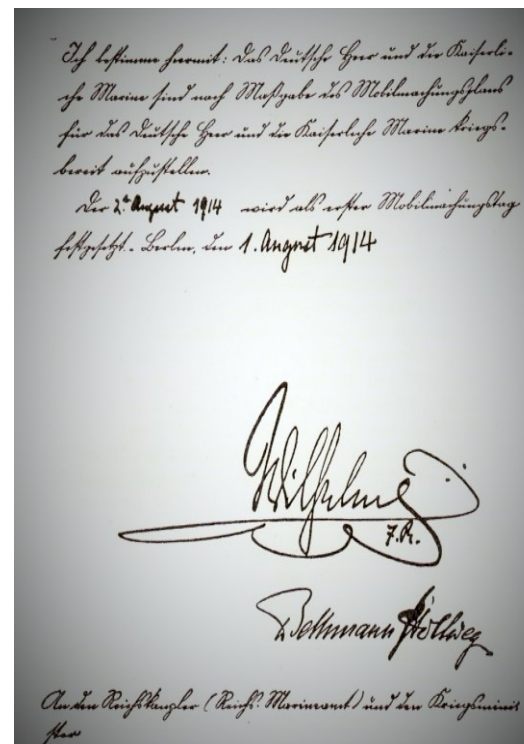 Ich bestimme hiermit: Das Deutsche Heer und die Kaiserli-
che Marine sind nach Maßgabe des Mobilmachungsplans
für das Deutsche Heer und die Kaiserliche Marine kriegs-
bereit aufzustellen.
Der 2te August 1914 wird als erster Mobilmachungstag
festgesetzt. - Berlin, den 1. August 1914
Wilhelm
I.R.
Bethmann Hollweg
An den Reichskanzler (Reichs-Marineamt) und den Kriegsminis
ter